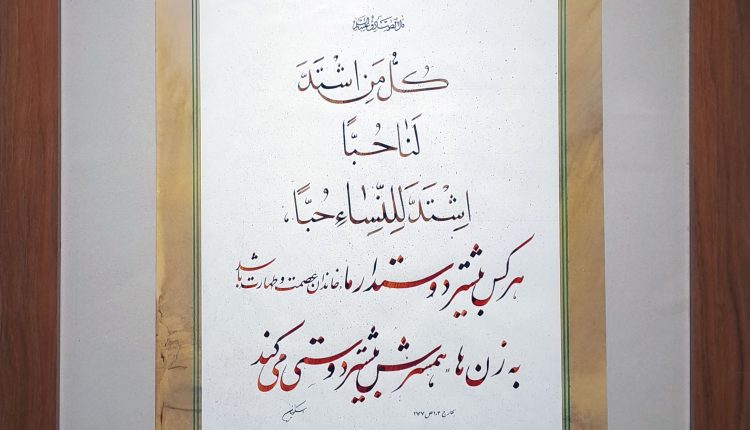 قال الصادق علیه السلام
كُلُّ مَنِ اشْتَدَّ
لَنا حُبًّا
اِشْتَدَّ لِلنِّسٰاءِ حُبًّا
هر کس بیشتر دوستدار ما، خاندان عصمت و طهارت باشد
به زن ها "همسرش" بیشتر دوستی می کند
ج ۱۰۳ ص ۲۲۷